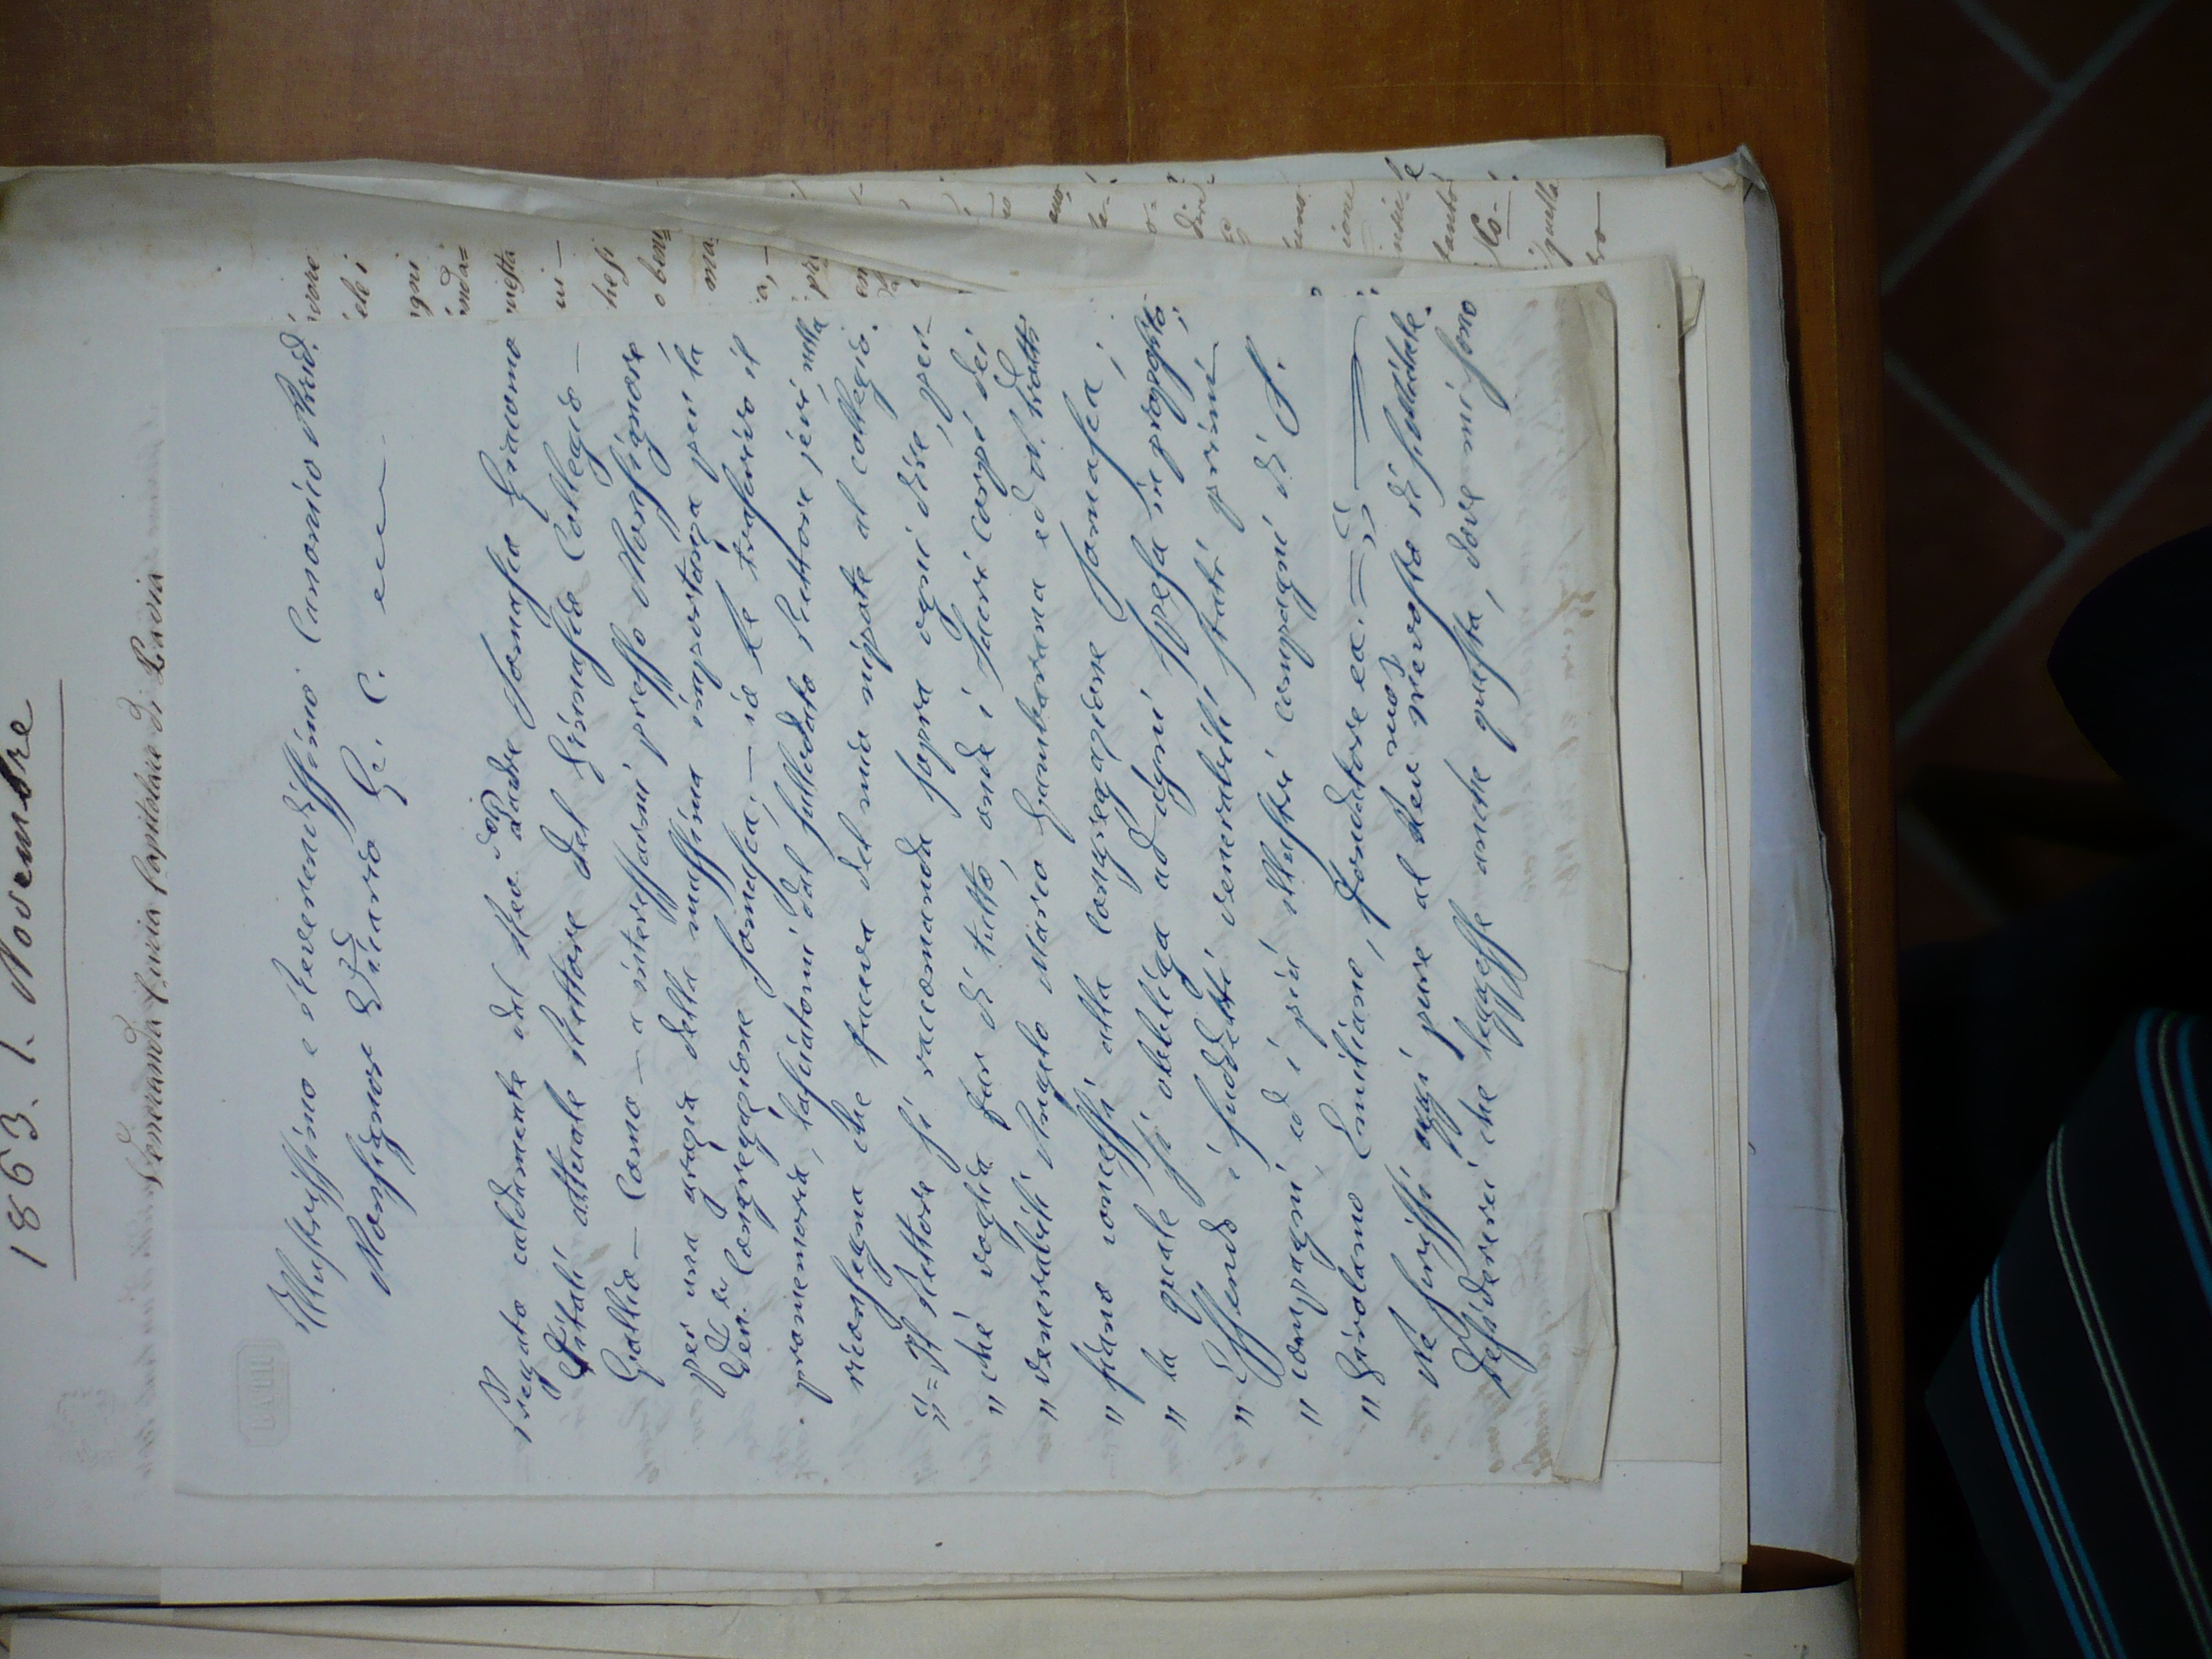 1863. 1. Novembre
Veneranda Curia Capitolare di Pavia
BATH
Illustrissimo e Reverendissimo Canonico Arcid.
Monsignor Vicario G. C. ecc
Pregato caldamente dal Rev. Padre Somasco Giacomo
Vitali attuale Rettore del Ginnasio Collegio —
Gallio — Como — a interessarmi presso Monsignore
per una grazia della massima importanza per la
Ven. Congregazione Somasca; — io Le trascrivo il
promemoria, lasciatomi dal sullodato Rettore jeri nella
riconsegna che faceva del mio nipote al collegio.
" = Il Rettore si raccomanda sopra ogni dire, per-
" ché voglia far di tutto, onde i sacri corpi dei
" venerabili Angelo Marco Gambarana ed
" siano concessi alla Congregazione Somasca;
" la quale si obbliga ad ogni spesa in proposito;
" Essendo i suddetti venerabili stati primi
" compagni ed i più illustri compagni di S.
" Girolamo Emiliano, fondatore ec. = "; —
Ne scrissi oggi pure al Rev. mo Prevosto di
desidererei che leggesse anche questa, dove mi sono